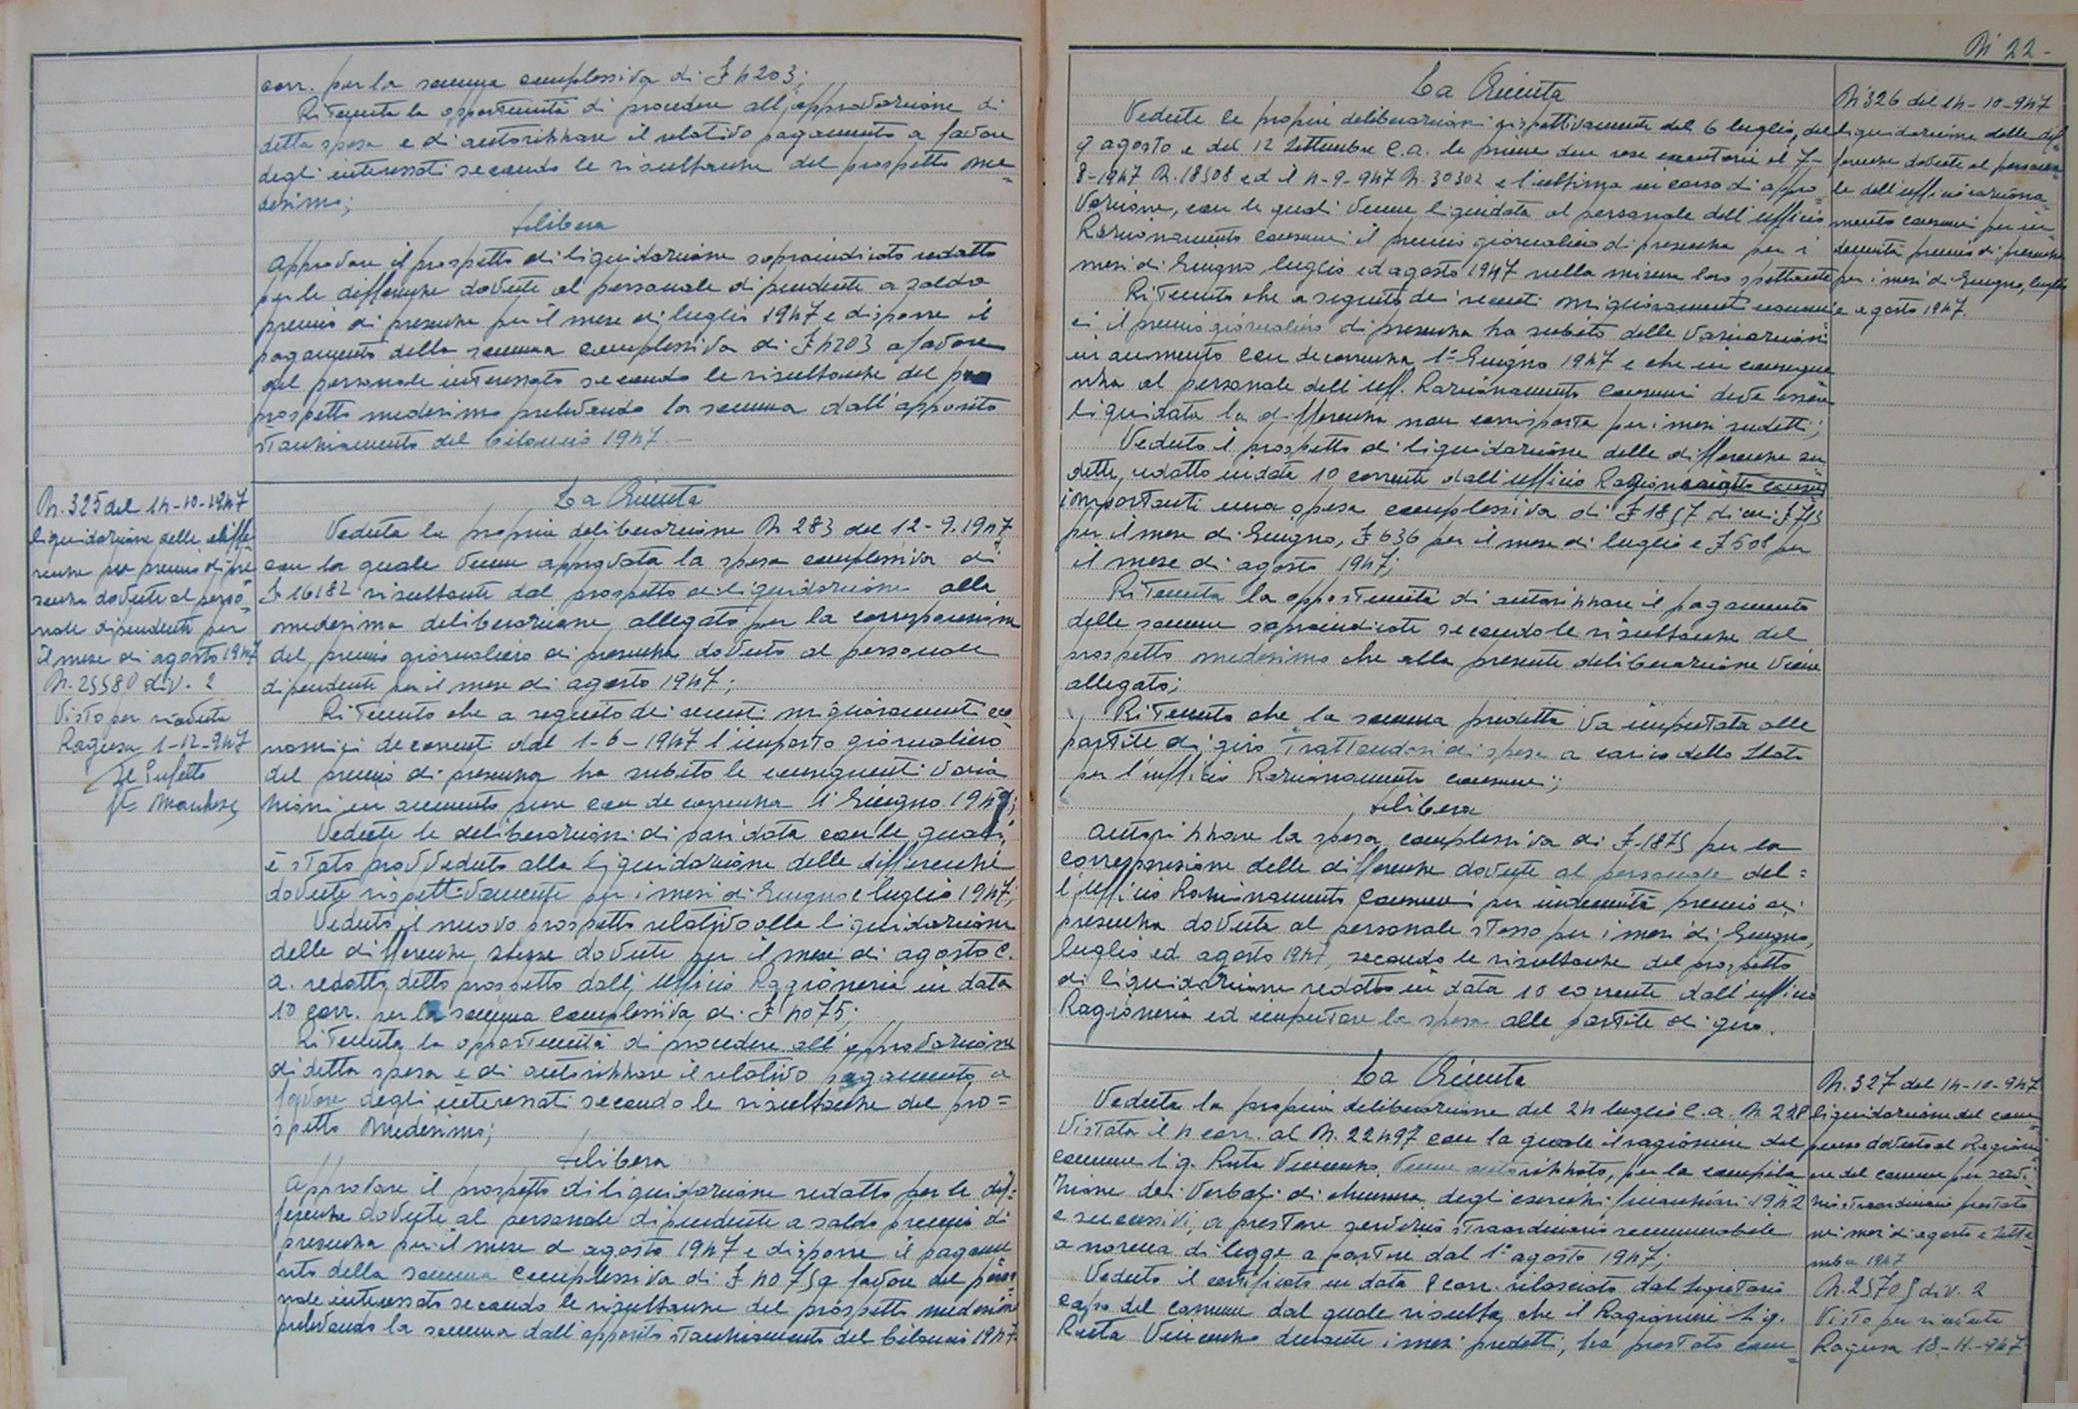 corr. per la somma complessiva di £ 4203;
Ritenuta la opportunità di procedere all'approvazione di
detta spesa e di autorizzare il relativo pagamento a favore
degli interessati secondo le risultanze del prospetto me=
desimo;
delibera
Approvare il prospetto di liquidazione sopraindicato redatto
per le differenze dovute al personale dipendente a saldo
premio di presenza per il mese di luglio 1947 e disporre il
pagamento della somma complessiva di £ 4203 a favore
del personale interessato secondo le risultanze del
prospetto medesimo prelevando la somma dall'apposito
stanziamento del bilancio 1947. -
N. 325 del 14-10-1947
liquidazione delle diffe
renze per premio di pre
senza dovute al perso=
nale dipendente per
il mese di agosto 1947
N. 25580 div. 2
Visto per ricevuta
Ragusa 1-12-947
Il Prefetto
La Giunta
Veduta la propria deliberazione N 283 del 12-9-1947
con la quale venne approvata la spesa complessiva di
£ 16182 risultante dal prospetto di liquidazione alla
medesima deliberazione allegato per la corresponsione
del premio giornaliero di presenza dovuto al personale
dipendente per il mese di agosto 1947;
Ritenuto che a seguito dei recenti miglioramenti eco
nomici decorrenti dal 1-6-1947 l'importo giornaliero
del premio di presenza ha subito le conseguenti varia
zioni in aumento pure con decorrenza 1° Giugno 1947;
Vedute le deliberazioni di pari data con le quali
è stato provveduto alla liquidazione delle differenze
dovute rispettivamente per i mesi di Giugno e luglio 1947;
Veduto il nuovo prospetto relativo alla liquidazione
delle differenze stesse dovute per il mese di agosto c.
a. redatto detto prospetto dall'Ufficio Ragioneria in data
10 corr. per la somma complessiva di £ 4075;
Ritenuta la opportunità di procedere all'approvazione
di detta spesa e di autorizzare il relativo pagamento a
favore degli interessati secondo le risultanze del pro=
spetto medesimo;
delibera
Approvare il prospetto di liquidazione redatto per le dif=
ferenze dovute al personale dipendente a saldo premio di
presenza per il mese di agosto 1947 e disporre il pagame
nto della somma complessiva di £ 4075 a favore del perso
nale interessato secondo le risultanze del prospetto medesimo
prelevando la somma dall'apposito stanziamento del bilancio 1947
N° 22 -
La Giunta
Vedute le proprie deliberazioni rispettivamente del 6 luglio, del
9 agosto e del 12 Settembre c.a. le prime due rese esecutorie il 7-
8-1947 N. 18508 ed il 4-9-947 N. 30302 e l'ultima in corso di appro
vazione, con le quali venne liquidata al personale dell'ufficio
Razionamento Consumi il premio giornaliero di presenza per i
mesi di Giugno, luglio ed agosto 1947 nella misura loro spettante
Ritenuto che a seguito dei recenti miglioramenti economi
ci il premio giornaliero di presenza ha subito delle variazioni
in aumento con decorrenza 1° Giugno 1947 e che in consegue
nza al personale dell'Uff. Razionamento Consumi deve essere
liquidata la differenza non corrisposta per i mesi sudetti;
Veduto il prospetto di liquidazione delle differenze su
dette, redatto in data 10 corrente dall'ufficio
importanti una spesa complessiva di £ 1857 di cui £ 713
per il mese di Giugno, £ 636 per il mese di luglio e £ 508 per
il mese di agosto 1947;
Ritenuta la opportunità di autorizzare il pagamento
delle somme sopraindicate secondo le risultanze del
prospetto medesimo che alla presente deliberazione viene
allegato;
Ritenuto che la somma predetta va imputata alle
partite di giro trattandosi di spesa a carico dello Stato
per l'ufficio Razionamento consumi;
delibera
Autorizzare la spesa complessiva di £ 1875 per la
corresponsione delle differenze dovute al personale del=
l'ufficio Razionamento Consumi per indennità premio di
presenza dovuta al personale stesso per i mesi di Giugno,
luglio ed agosto 1947, secondo le risultanze del prospetto
di liquidazione redatto in data 10 corrente dall'ufficio
Ragioneria ed imputare la spesa alle partite di giro.
N° 326 del 14-10-947
liquidazione delle dif=
ferenze dovute al persona=
le dell'ufficio raziona=
mento consumi per in=
dennità premio di presenza
per i mesi di Giugno, luglio
e agosto 1947.
La Giunta
Veduta la propria deliberazione del 24 luglio c.a. N 228
vistata il 4 corr. al N. 22497 con la quale il ragioniere del
comune Sig. Ruta Vincenzo, venne autorizzato, per la compila
zione dei verbali di chiusura degli esercizi finanziari 1942
e successivi, a prestare servizio straordinario remunerabile
a norma di legge a partire dal 1° agosto 1947;
Veduto il certificato in data 8 corr. rilasciato dal Segretario
capo del comune dal quale risulta che il Ragioniere Sig.
Ruta Vincenzo durante i mesi predetti, ha prestato com=
N. 327 del 14-10-947
liquidazione del com=
penso dovuto al Ragioni=
ere del comune per servi=
zio straordinario prestato
nei mesi di agosto e Sette=
mbre 1947
N. 25705 div. 2
Visto per ricevuta
Ragusa 18-11-947